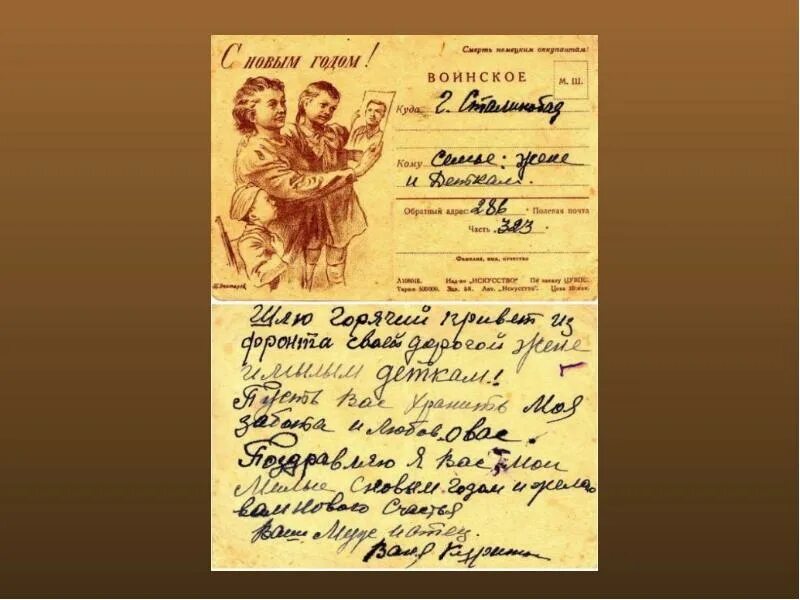 С новым годом!
Смерть немецким оккупантам!
ВОИНСКОЕ
М. Ш.
Куда г. Сталинобад
Кому Семье: жене
и Деткам.
Обратный адрес: 286 Полевая почта
Часть 323
Фамилия, имя, отчество
Изд-во „ИСКУССТВО"
Тираж 500000. Зак. 48. Авт. „Искусство".
Шлю горячий привет из
фронта своей дорогой жене
и милым деткам!
Пусть Вас хранить Моя
забота и любов о вас.
Поздравляю я Вас Мои
Милые с новым годом и желаю
вам нового счастья
Ваш Муж и отец.
Ваня